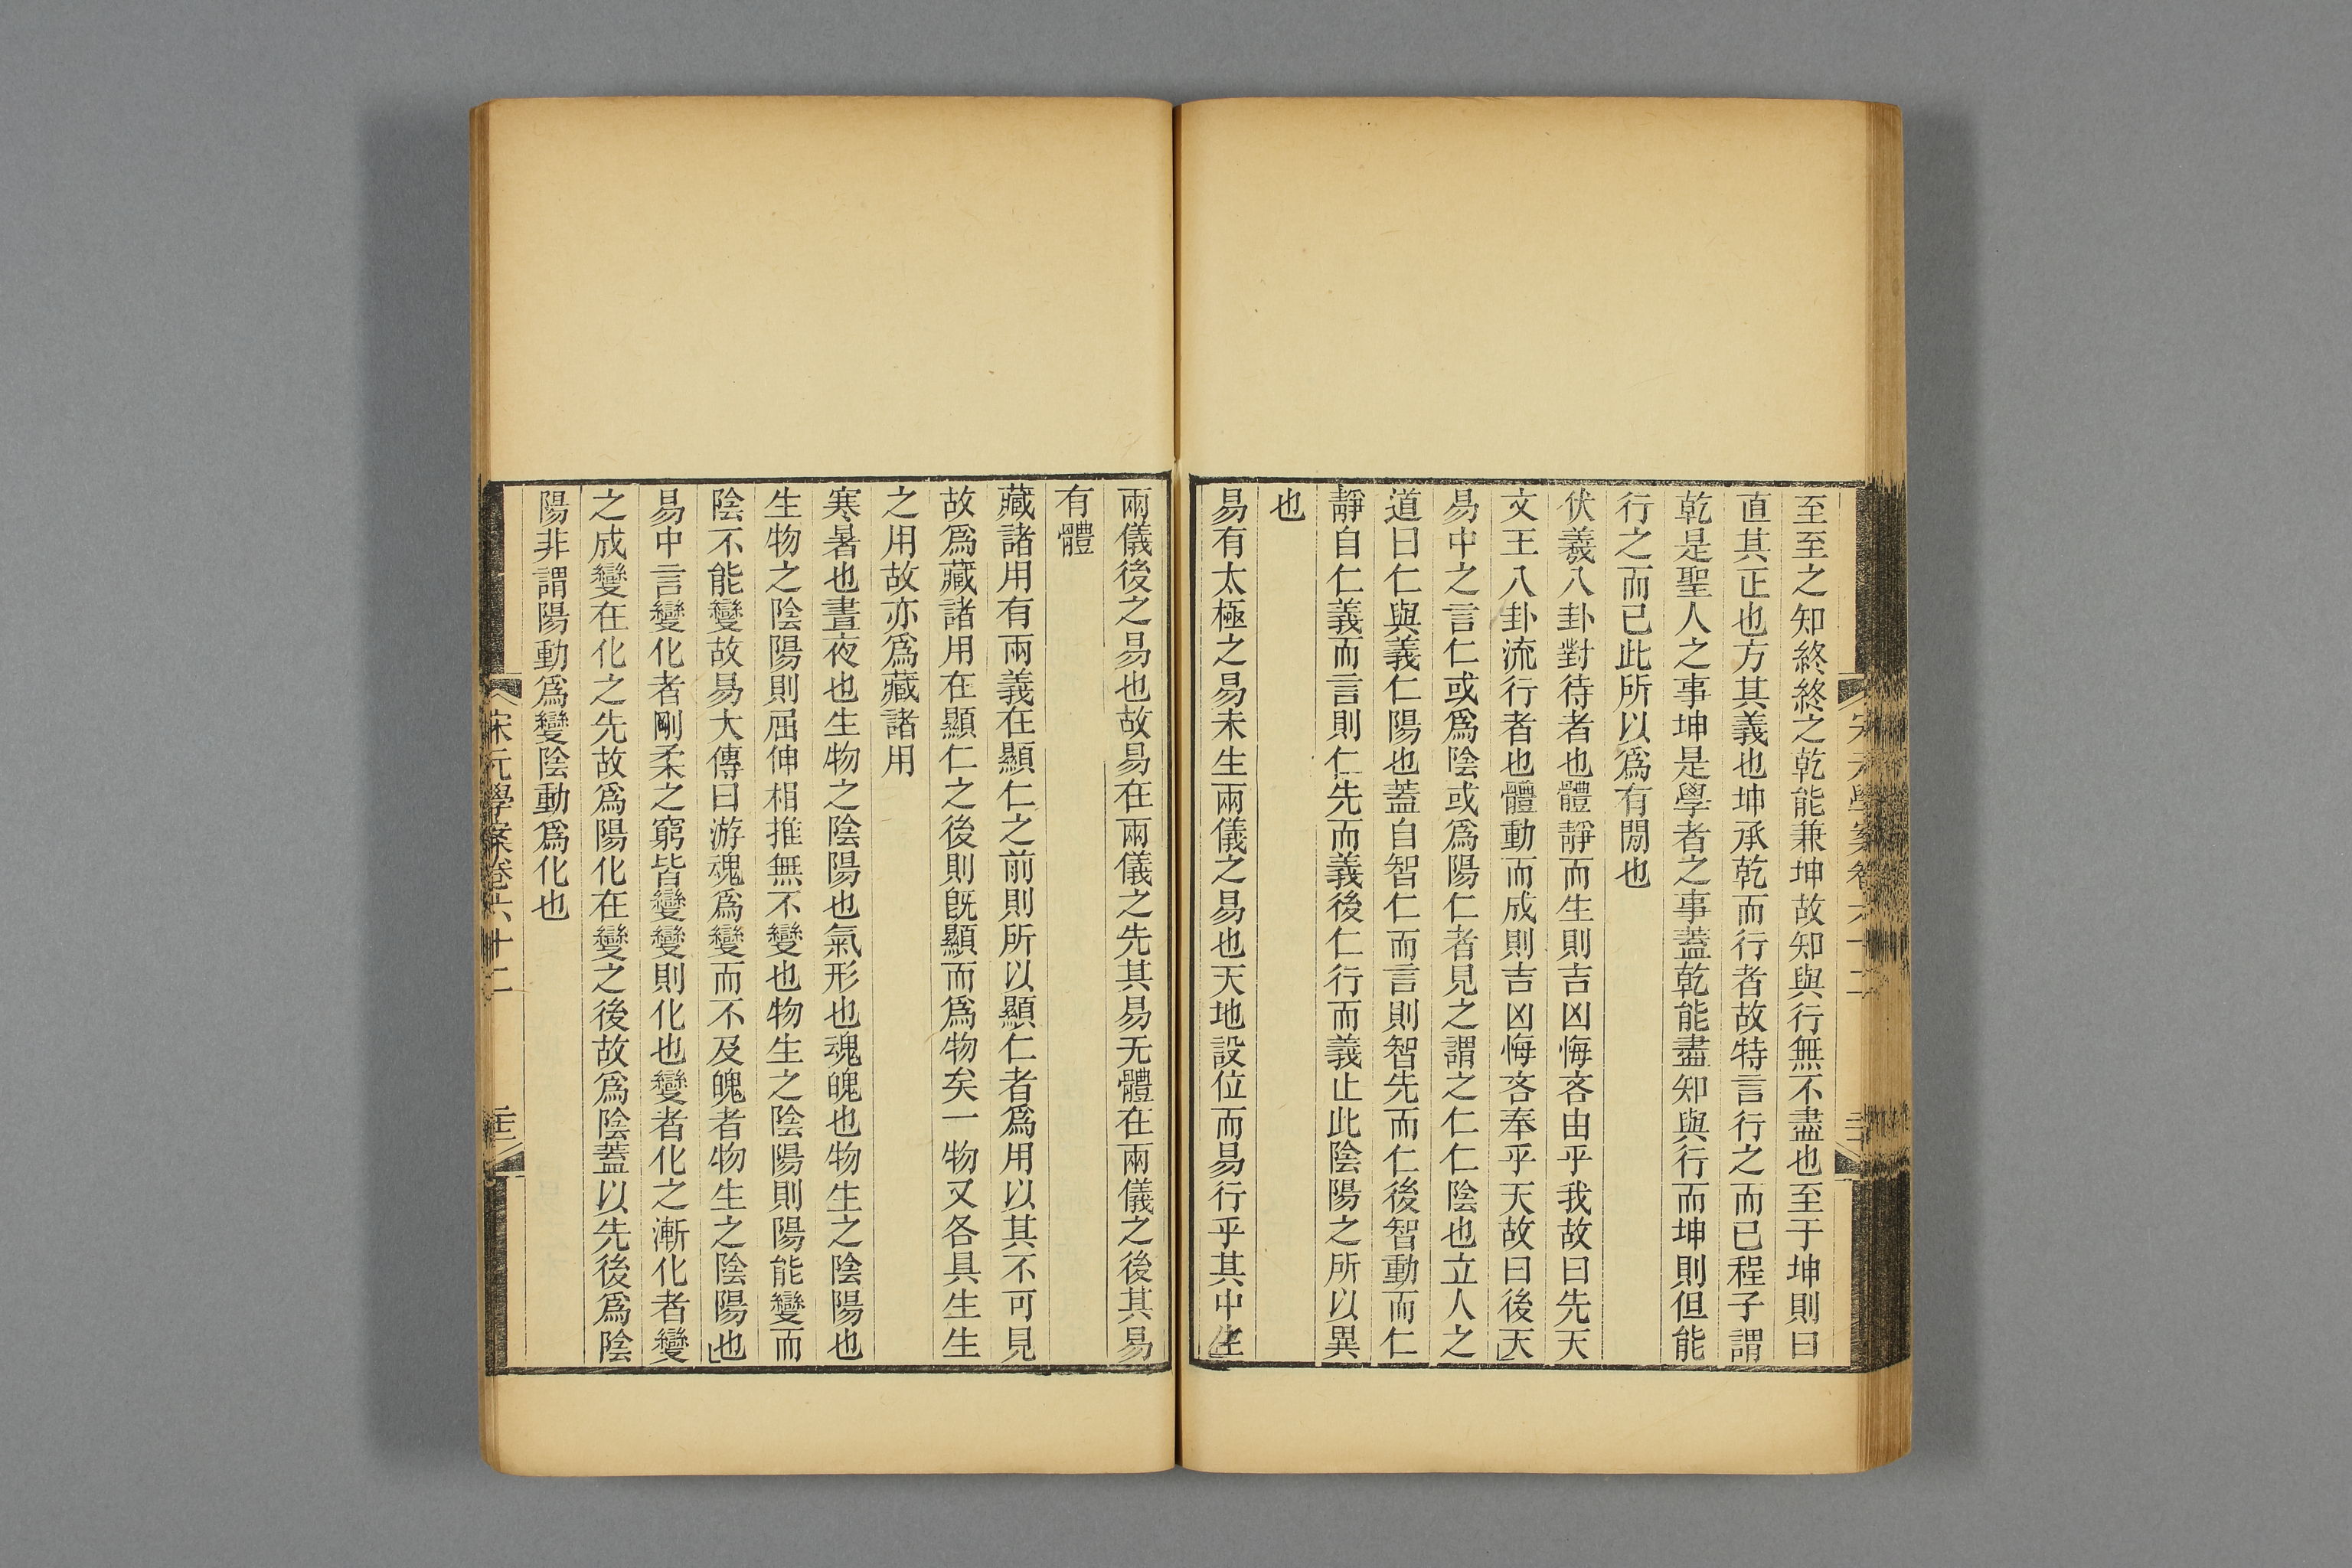 至至之知終終之乾能兼坤故知與行無不盡也至于坤則曰
直其正也方其義也坤承乾而行者故特言行之而已程子謂
乾是聖人之事坤是學者之事蓋乾能盡知與行而坤則但能
行之而已此所以爲有閒也
伏羲八卦對待者也體靜而生則吉凶悔吝由乎我故曰先天
文王八卦流行者也體動而成則吉凶悔吝奉乎天故曰後天
易中之言仁或爲陰或爲陽仁者見之謂之仁仁陰也立人之
道曰仁與義仁陽也蓋自智仁而言則智先而仁後智動而仁
靜自仁義而言則仁先而義後仁行而義止此陰陽之所以異
也
易有太極之易未生兩儀之易也天地設位而易行乎其中生
兩儀後之易也故易在兩儀之先其易无體在兩儀之後其易
有體
藏諸用有兩義在顯仁之前則所以顯仁者爲用以其不可見
故爲藏諸用在顯仁之後則旣顯而爲物矣一物又各具生生
之用故亦爲藏諸用
寒暑也晝夜也生物之陰陽也氣形也魂魄也物生之陰陽也
生物之陰陽則屈伸相推無不變也物生之陰陽則陽能變而
陰不能變故易大傳曰游魂爲變而不及魄者物生之陰陽也
易中言變化者剛柔之窮皆變變則化也變者化之漸化者變
之成變在化之先故爲陽化在變之後故爲陰蓋以先後爲陰
陽非謂陽動爲變陰動爲化也
宋元學案卷六十二